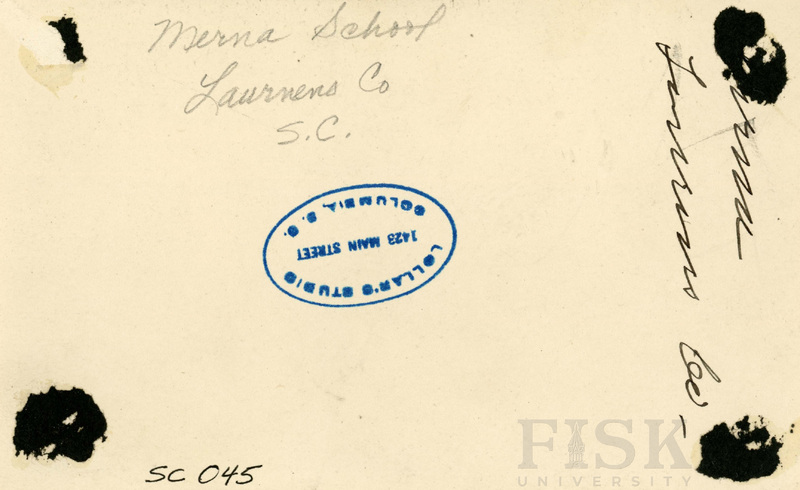 Merna School
Laurnens Co
S.C.
LOLLAR'S STUDIO
1423 MAIN STREET
COLUMBIA, S. C.
Laurens Co-
SC 045
FISK
UNIVERSITY